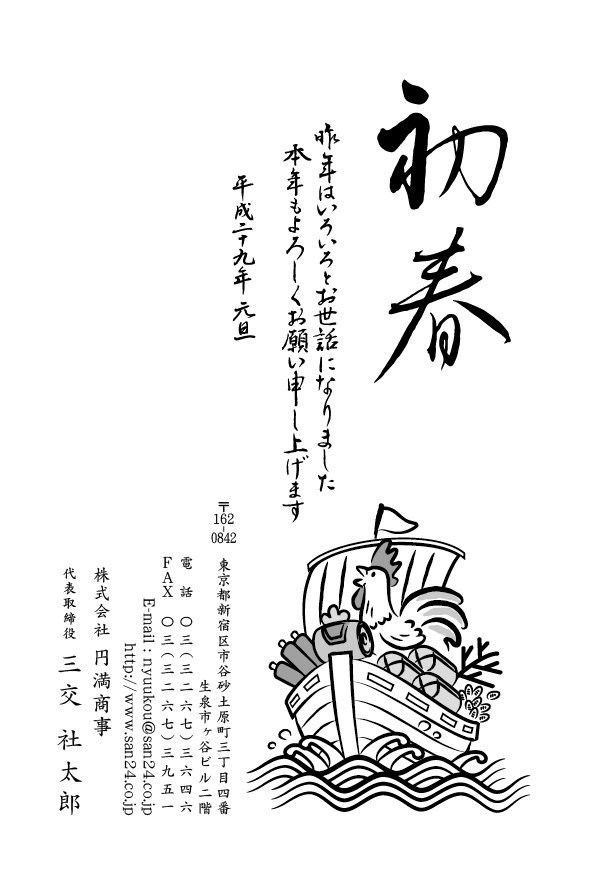 初春
昨年はいろいろとお世話になりました
本年もよろしくお願い申し上げます
平成二十九年 元旦
〒162-0842
東京都新宿区市谷砂土原町三丁目四番
生泉市ヶ谷ビル二階
電話 〇三(三二六七)三六四六
FAX 〇三(三二六七)三九五一
E-mail : nyuukou@san24.co.jp
http://www.san24.co.jp
株式会社 円満商事
代表取締役 三交 社太郎